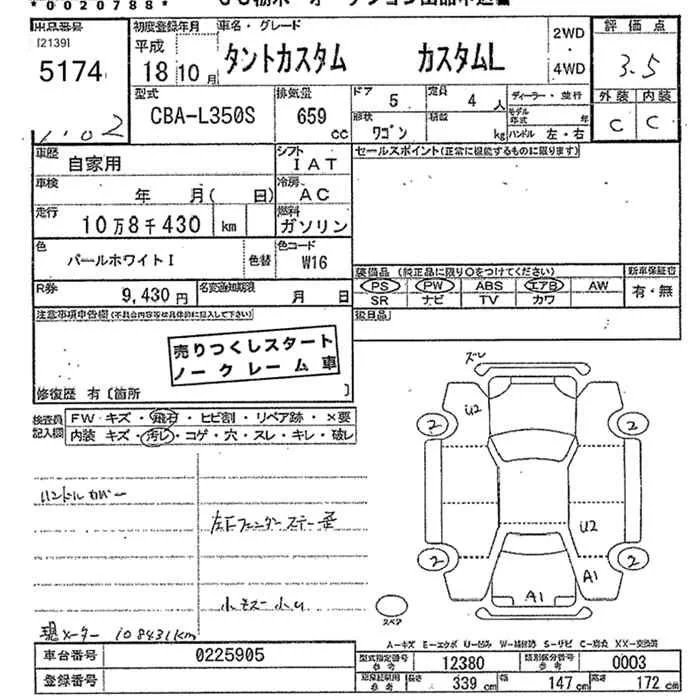 *0020788*
出品番号 初度登録年月 車名・グレード 2WD 評価点
[2139] 平成
5174 18 10月 タントカスタム カスタムL 4WD 3.5
型式 排気量 ドア 5 定員 4人 ディーラー・並行 外装 内装
CBA-L350S 659 cc 形状 ワゴン 積載 kg モデル年式 年 ハンドル 左・右 C C
1102
車歴 自家用 シフト IAT セールスポイント(正常に機能するものに限ります)
車検 年 月( 日) 冷房 AC
走行 10万8千430 km 燃料 ガソリン
色 パールホワイトI 色替 色コード W16
装備品 (純正品に限り○をつけてください) 新車保証書
R券 9,430円 名変通知期限 月 日
PS PW ABS エアB AW 有・無
SR ナビ TV カワ
注意事項申告欄(不具合内容等は具体的に記入して下さい) 後日品
売りつくしスタート
ノークレーム車
修復歴 有〔箇所 〕
検査員記入欄 FW キズ・飛石・ヒビ割・リペア跡・×要
内装 キズ・汚レ・コゲ・穴・スレ・キレ・破レ
ズレ
U2
2 2
ハンドルカバー
左下フェンダーステー歪
U2
2 A1 2
A1
スペア
現メーター 108431km
A－キズ E－エクボ U－凹み W－補修跡 S－サビ C－腐食 XX－交換済
車台番号 0225905 型式指定番号 参考 12380 類別区分番号 参考 0003
登録番号 長さ 339 cm 幅 147 cm 高さ 172 cm